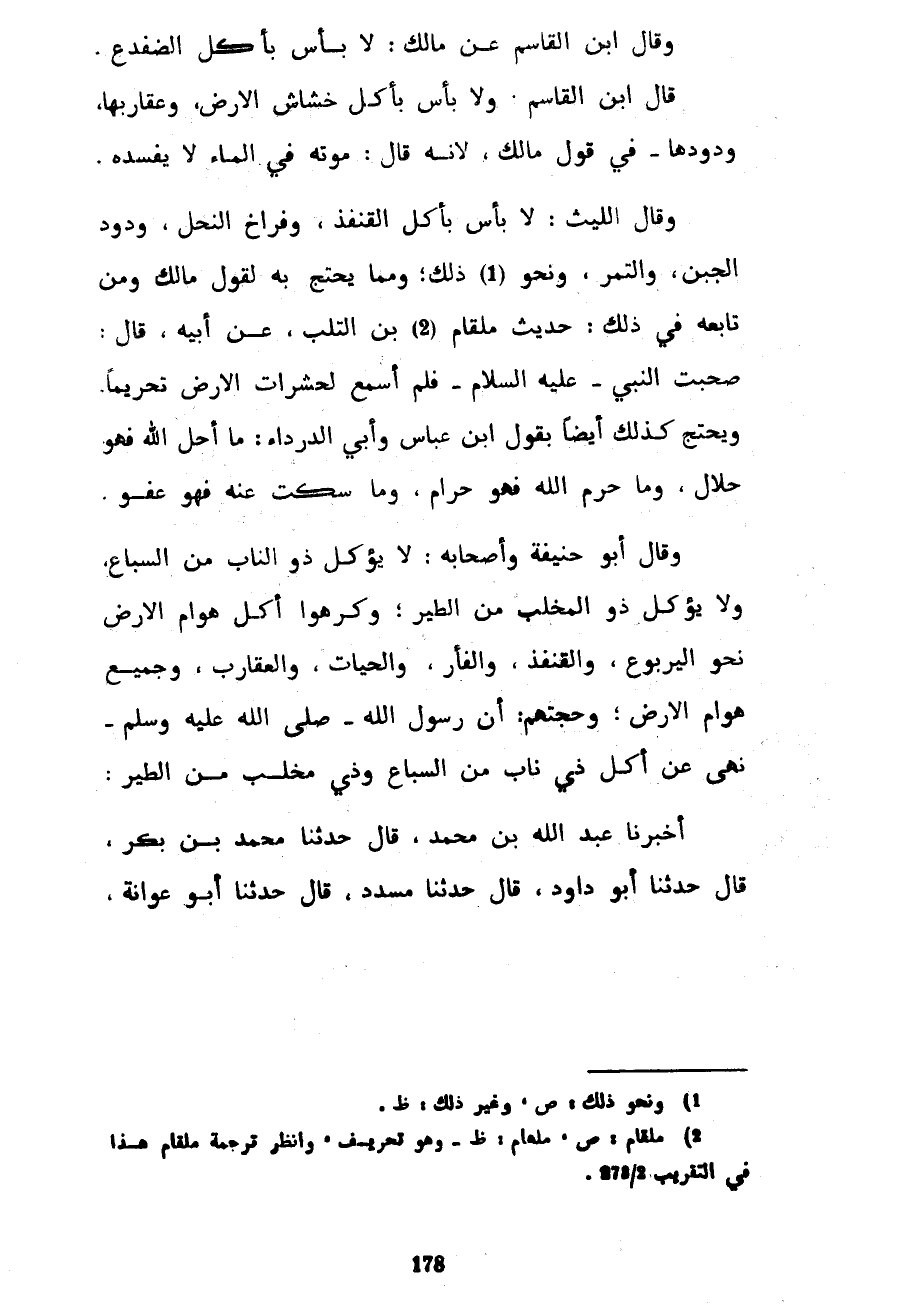 وقال ابن القاسم عن مالك : لا بأس بأكل الضفدع .
قال ابن القاسم · ولا بأس بأكل خشاش الارض، وعقاربها،
ودودها ـ في قول مالك ، لانه قال : موته في الماء لا يفسده .
وقال الليث : لا بأس بأكل القنفذ ، وفراخ النحل ، ودود
الجبن، والتمر ، ونحو (1) ذلك؛ ومما يحتج به لقول مالك ومن
تابعه في ذلك : حديث ملقام (2) بن التلب ، عن أبيه ، قال :
صحبت النبي ـ عليه السلام ـ فلم أسمع لحشرات الارض تحريماً.
ويحتج كذلك أيضاً بقول ابن عباس وأبي الدرداء: ما أحل الله فهو
حلال ، وما حرم الله فهو حرام ، وما سكت عنه فهو عفو .
وقال أبو حنيفة وأصحابه : لا يؤكل ذو الناب من السباع،
ولا يؤكل ذو المخلب من الطير ؛ وكرهوا أكل هوام الارض
نحو اليربوع ، والقنفذ ، والفأر ، والحيات ، والعقارب ، وجميع
هوام الارض ؛ وحجتهم: أن رسول الله ـ صلى الله عليه وسلم ـ
نهى عن أكل ذي ناب من السباع وذي مخلب من الطير :
أخبرنا عبد الله بن محمد ، قال حدثنا محمد بن بكر ،
قال حدثنا أبو داود ، قال حدثنا مسدد ، قال حدثنا أبو عوانة ،
1) ونحو ذلك : ص ، وغير ذلك : ظ .
2) ملقام : ص ، ملعام : ظ ـ وهو تحريف ، وانظر ترجمة ملقام هذا
في التقريب 273/2 .
178